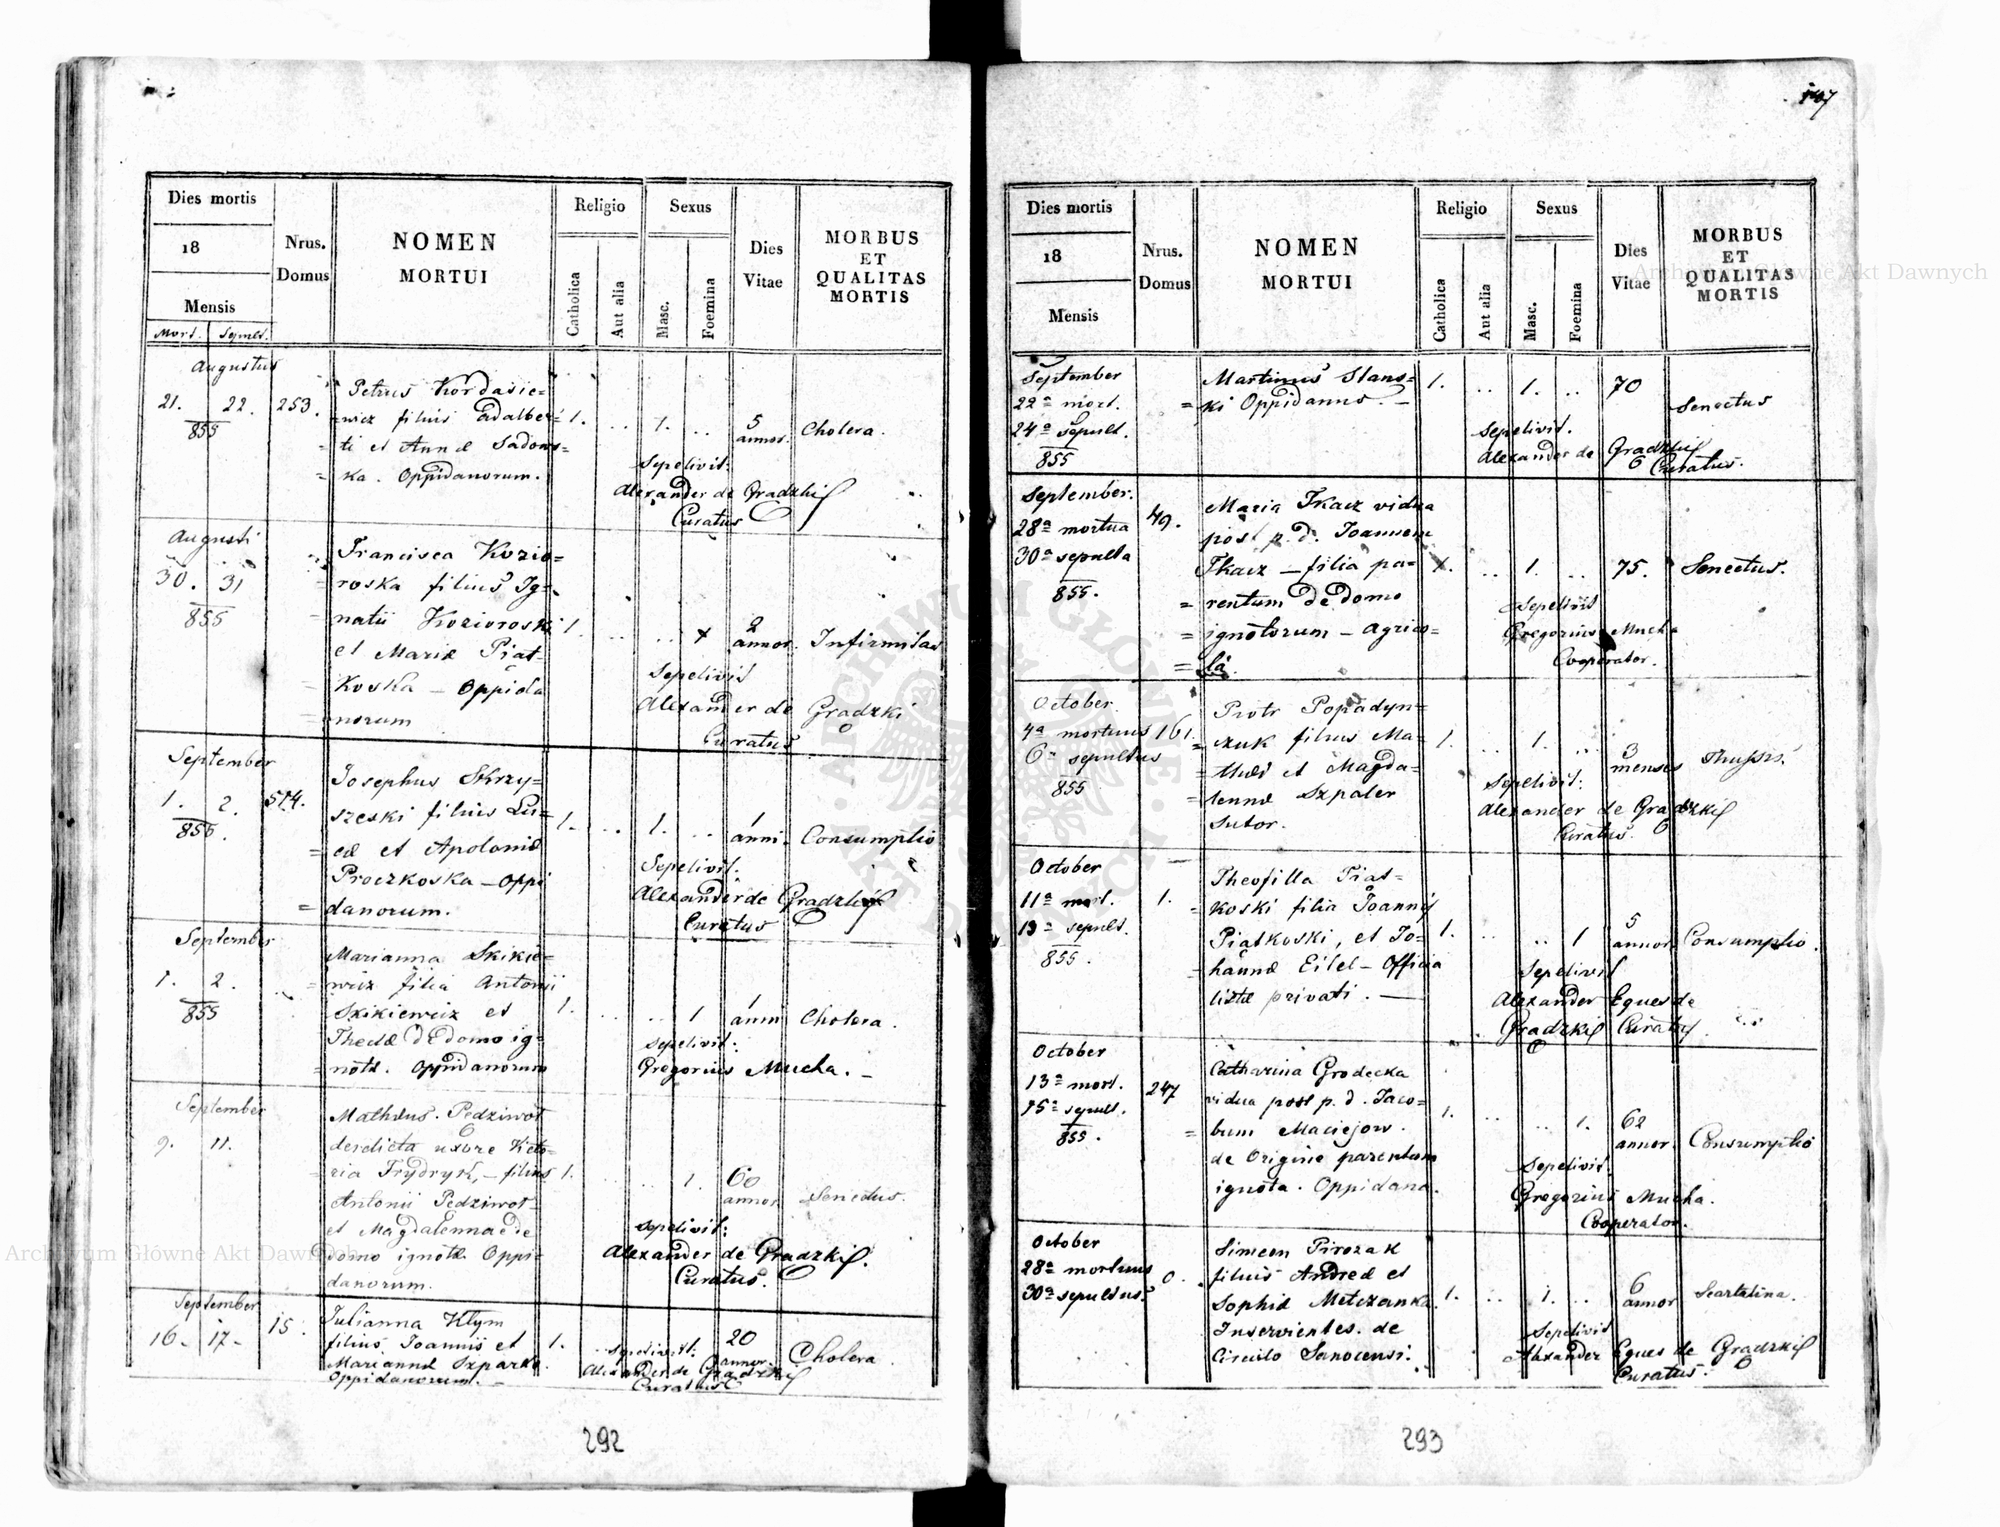 Dies mortis
18
Mensis
Mort. Sepult.
Nrus.
Domus
NOMEN
MORTUI
Religio
Catholica
Aut alia
Sexus
Masc.
Foemina
Dies
Vitae
MORBUS
ET
QUALITAS
MORTIS
Augustus
21. 22.
855
253.
Petrus Kordasie=
=wicz filius Adalber=
=ti et Annæ Sadows=
=ka. Oppidanorum.
1. .. 1. ..
5
annor.
Cholera.
Sepelivit:
Alexander de Gradzki
Curatus
Augusti
30. 31
855
Francisca Kozio=
=roska filius Ig=
=natii Kozioroski
et Mariæ Piąt=
=Koska — Oppida
=norum
1. .. .. 1
2
annor.
Infirmitas
Sepelivit
Alexander de Gradzki
Curatus
September
1. 2.
855.
574.
Josephus Skrzy=
szeski filius Lu=
=cæ et Apoloniæ
Proczkoska — Oppi
=danorum.
1. .. 1. ..
1
anni.
Consumptio
Sepelivit.
Alexander de Gradzki
Curatus
September
1. 2.
855
Marianna Skikie=
=wicz filia Antonii
Skikiewicz et
Theclæ de domo ig=
=notæ. Oppidanorum
1. .. .. 1
1
anni
Cholera.
Sepelivit:
Gregorius Mucha. —
September
9. 11.
Mathæus. Pędziwot
derelicta uxore Kata=
=ria Frydryk, — filius
Antonii Pędziwot
et Magdalennae de
domo ignotæ Oppi=
danorum.
1. .. .. 1.
60
annor.
Senectus.
Sepelivit:
Alexander de Gradzki.
Curatus.
September
16. 17.
15.
Julianna Klym
filius Joannis et
Mariannæ Szparko.
Oppidanorum. —
1.
20
annor.
Cholera
Sepelivit:
Alexander de Gradzki
Curatus
292
147
Dies mortis
18
Mensis
Nrus.
Domus
NOMEN
MORTUI
Religio
Catholica
Aut alia
Sexus
Masc.
Foemina
Dies
Vitae
MORBUS
ET
QUALITAS
MORTIS
September
22ª mort.
24ª sepult.
855
Martinus Slans=
=ki Oppidanus. —
1. .. 1. ..
70
Senectus
Sepelivit.
Alexander de Gradzki
Curatus.
September.
28ª mortua
30ª sepulta
855.
49.
Maria Tkacz vidua
post p. d. Joannem
Tkacz — filia pa=
=rentum de domo
=ignotorum — Agrico=
=la.
1. .. 1. ..
75.
Senectus.
Sepelivit
Gregorius Mucha
Cooperator.
October
4ª mortuus
6ª sepultus
855
161.
Piotr Popadyn=
=czuk filius Ma=
=thæi et Magda=
=lennæ Szpaler
Sutor.
1. .. 1. ..
3
menses
Thussis.
Sepelivit:
Alexander de Gradzki
Curatus.
October
11ª mort.
13ª sepult.
855.
1.
Theofilla Piąt=
=koski filia Joannis
Piątkoski, et Jo=
=hannæ Eitel — Officia
listæ privati. —
1. .. .. 1
5
annor.
Consumptio.
Sepelivit
Alexander Eques de
Gradzki Curatus
October
13ª mort.
15ª sepult.
855.
247
Catharina Grodecka
vidua post p. d. Jaco=
=bum Maciejow.
de Origine parentum
ignota. Oppidana.
1. .. .. 1.
62
annor.
Consumptio
Sepelivit.
Gregorius Mucha.
Cooperator.
October
28ª mortuus
30ª sepultus.
0.
Simeon Pirozak
filius Andreæ et
Sophiæ Metczanka.
Inservientes. de
Circulo Sanocensi.
1. .. 1. ..
6
annor
Scarlatina.
Sepelivit
Alexander Eques de Gradzki
Curatus.
293
Archiwum Główne Akt Dawnych
Archiwum Główne Akt Dawnych
ARCHIWUM GŁÓWNE AKT DAWNYCH